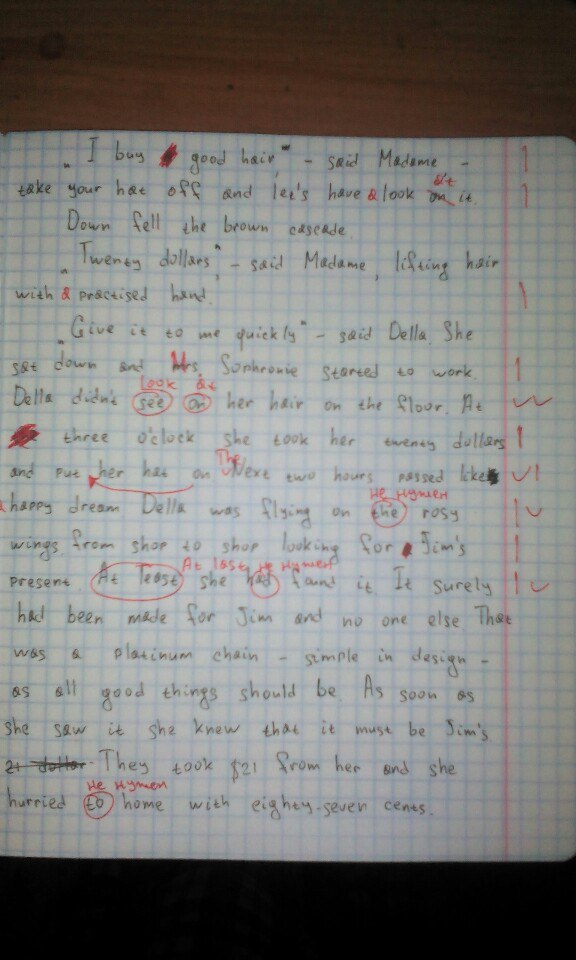 „ I buy good hair," - said Madame -
at
take your hat off and let's have a look on it.
Down fell the brown cascade.
„ Twenty dollars", - said Madame, lifting hair
with a practised hand.
„Give it to me quickly" - said Della. She
sat down and Mrs. Sophronie started to work.
look at
Della didn't see on her hair on the floor. At
three o'clock she took her twenty dollars
and put her hat on The Next two hours passed like
не нужен
a happy dream Della was flying on the rosy
wings from shop to shop looking for Jim's
At last не нужен
present. At Teast she had found it It surely
had been made for Jim and no one else That
was a platinum chain - simple in design -
as all good things should be. As soon as
she saw it she knew that it must be Jim's.
21 dollar They took $21 from her and she
не нужен
hurried to home with eighty-seven cents.